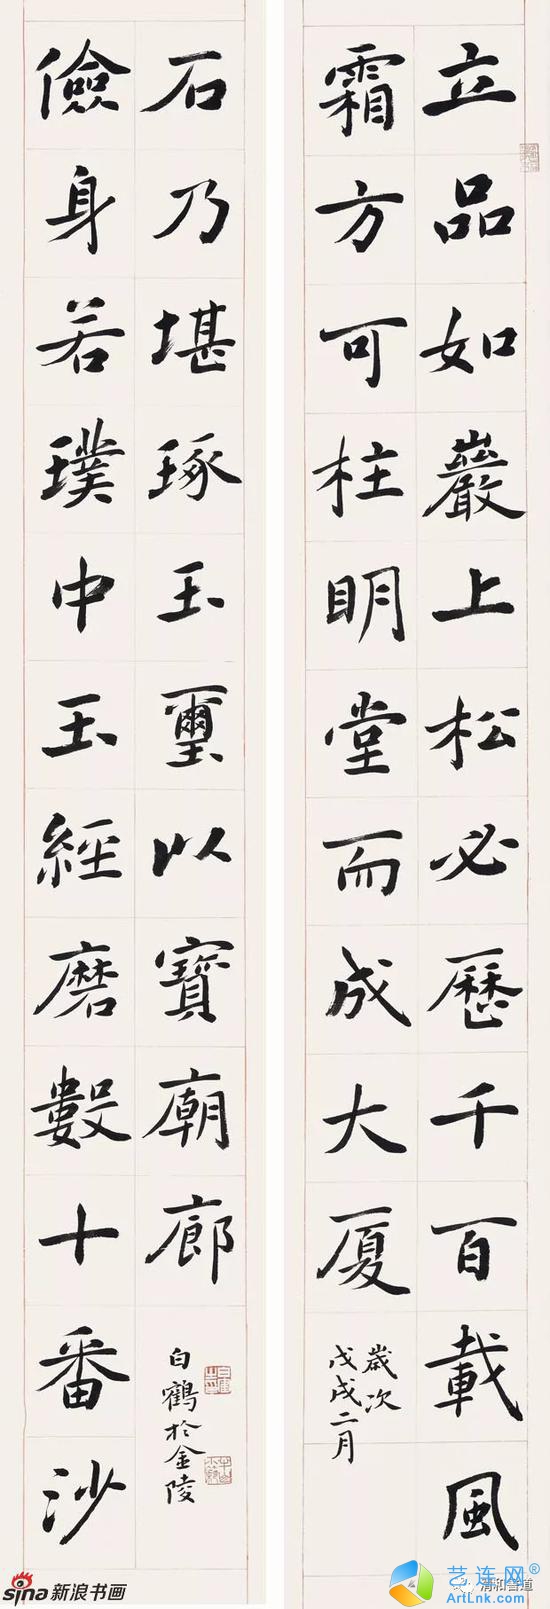 立品如巖上松必歷千百載風
霜方可柱明堂而成大厦
歲次
戊戌二月
儉身若璞中玉經磨數十番沙
石乃堪琢玉璽以寶廟廊
白鶴於金陵
sina新浪书画
艺连网
ArtLnk.com